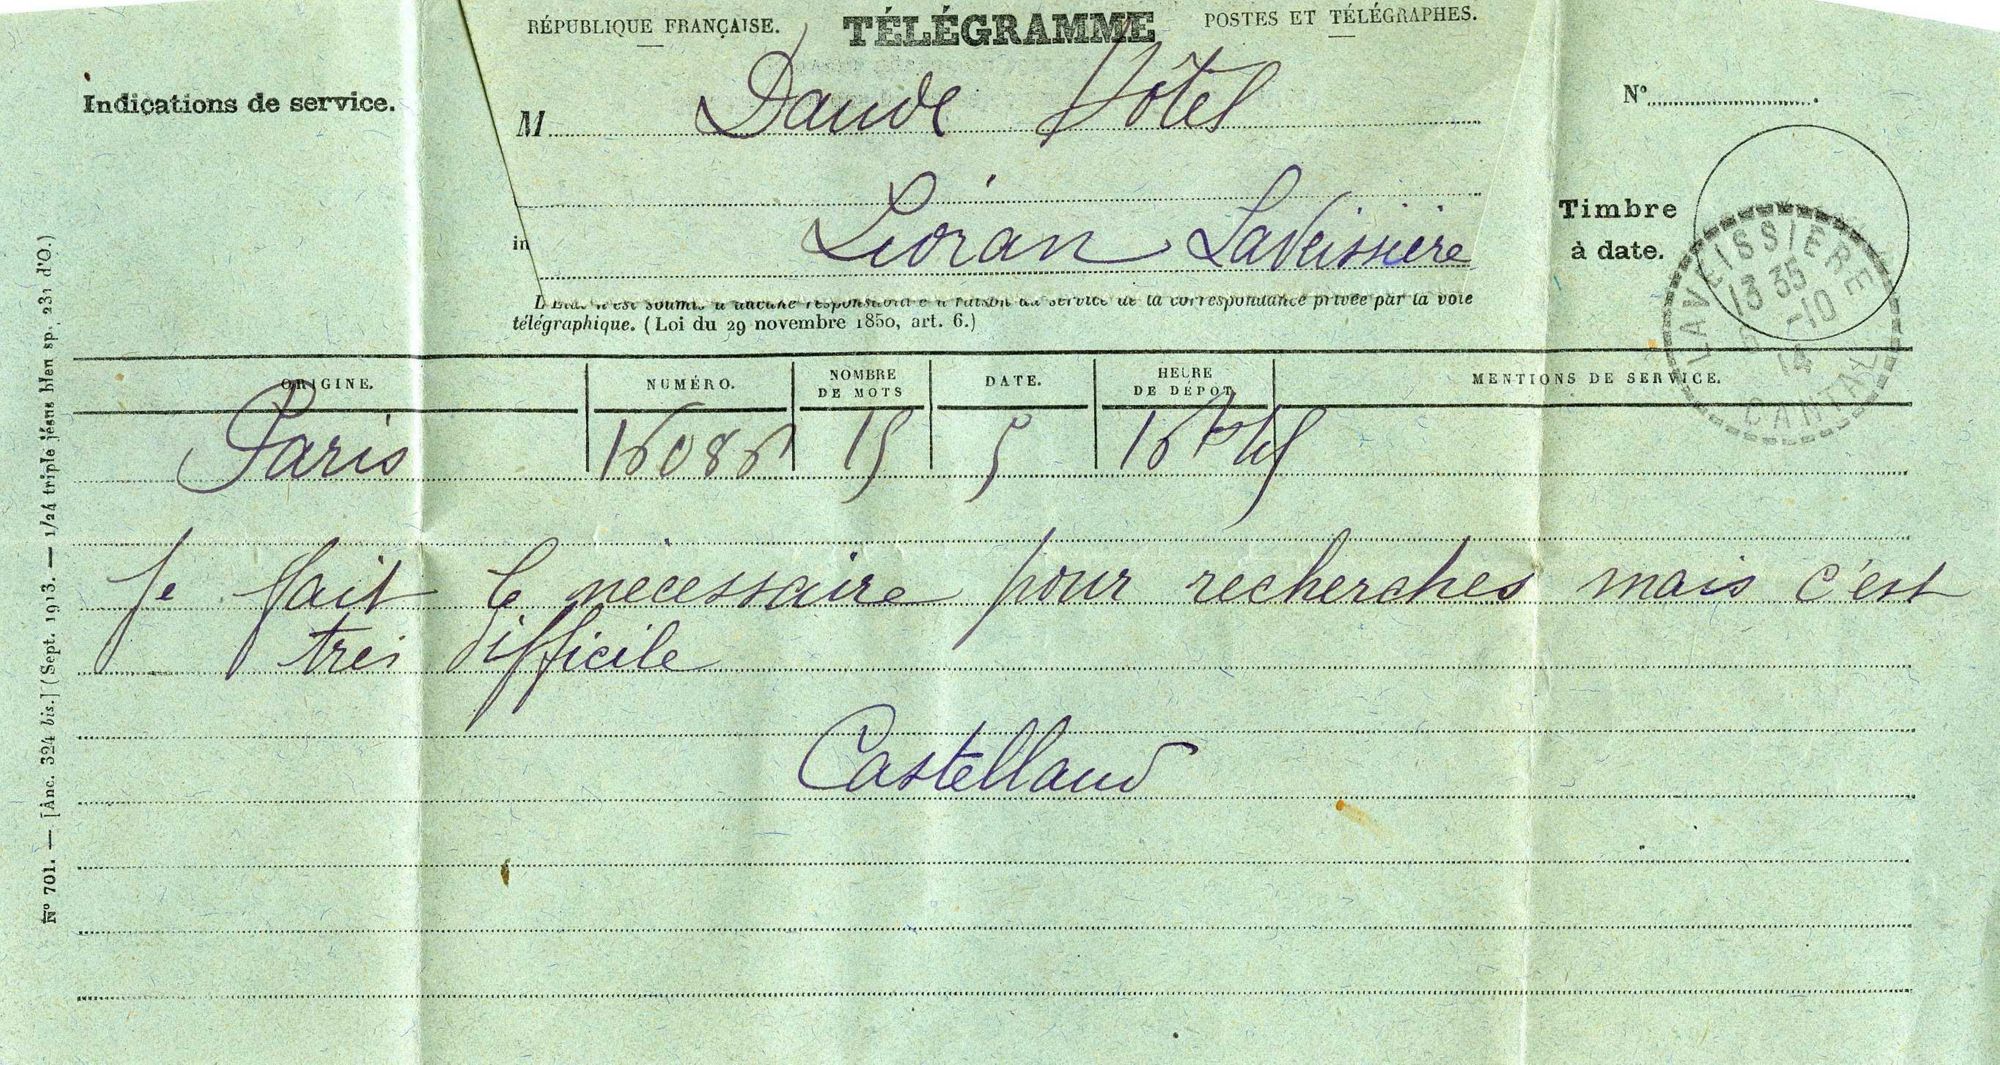 RÉPUBLIQUE FRANÇAISE. TÉLÉGRAMME POSTES ET TÉLÉGRAPHES.
Indications de service.
M Daude Hôtel
N°
Lioran Laveissière
in
Timbre
à date.
LAVEISSIERE
13 35
5 -10
14
CANTAL
n'est soumis à aucune responsabilité à raison du service de la correspondance privée par la voie
télégraphique. (Loi du 29 novembre 1850, art. 6.)
ORIGINE. NUMÉRO. NOMBRE DE MOTS DATE. HEURE DE DÉPOT. MENTIONS DE SERVICE.
Paris 16086 15 5
Je fait le nécessaire pour recherches mais c'est
très difficile
Castelland
N° 701. — [Anc. 324 bis.] (Sept. 1913. — 1/24 triple jésus bien sp. 231 d'O.)